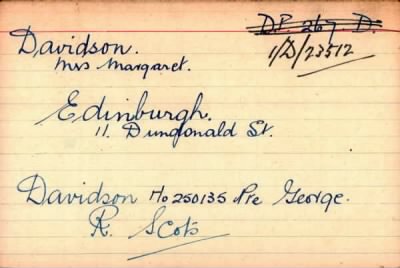 D.P. 267. D.
1/D/23512
Davidson.
Mrs Margaret.
Edinburgh.
11. Dundonald St.
Davidson No 250135 Pte George.
R. Scots